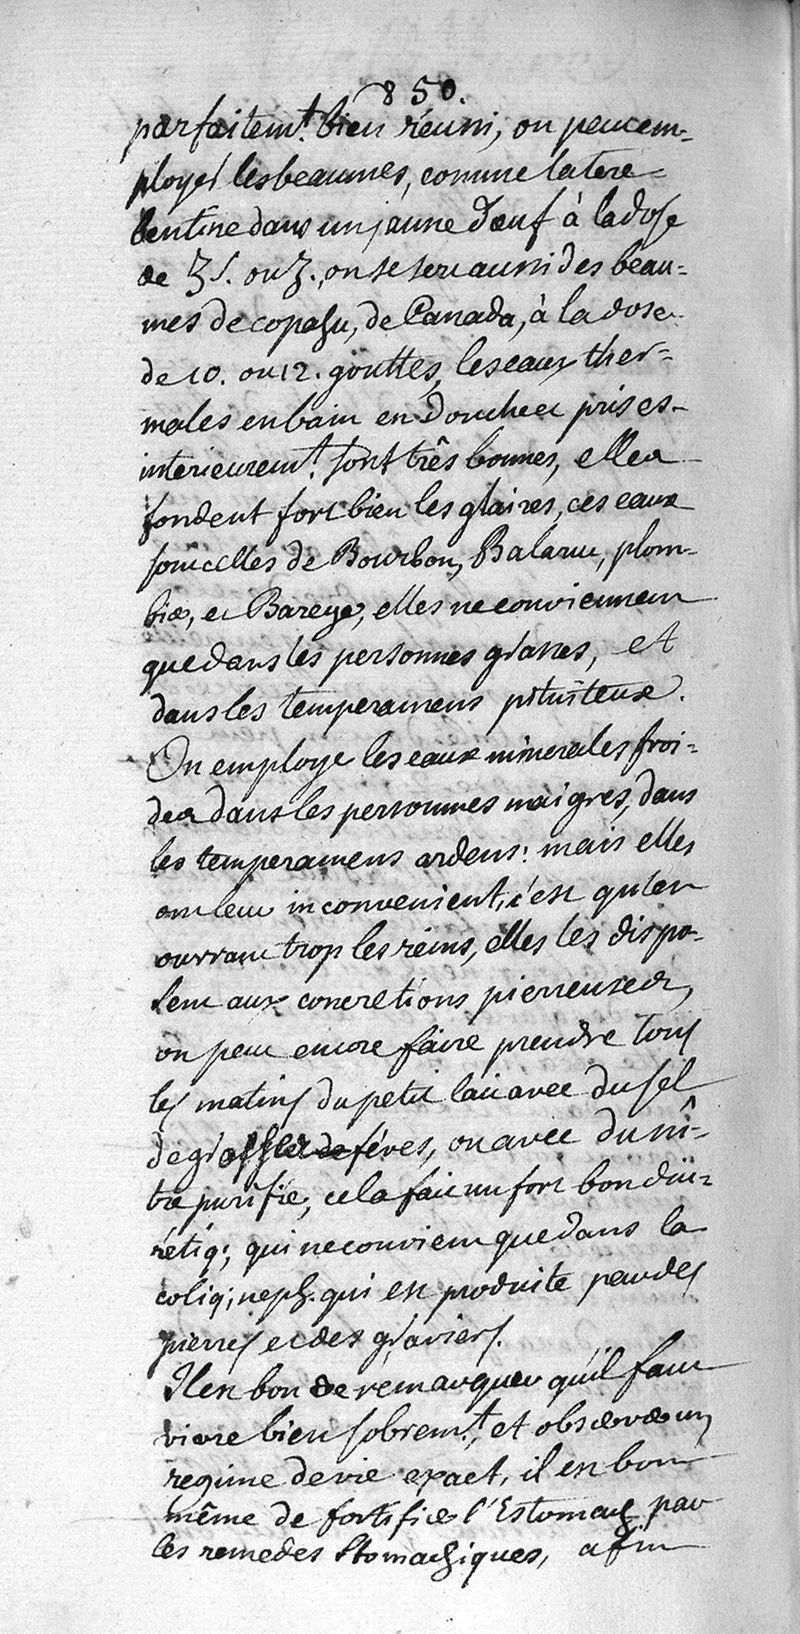 850.
parfaitemt. bien réuni, on peut em-
ployer les beaumes, comme la tere-
bentine dans un jaune d'œuf à la dose
de ʒs. ou ʒ., on se sert aussi des beau-
mes de copahu, de Canada, à la dose
de 10. ou 12. gouttes, les eaux ther-
males en bain en Douche et prises
interieuremt. sont três bonnes, elles
fondent fort bien les glaires, ces eaux
sont celles de Bourbon, Balaruc, plom-
bie, et Barege, elles ne conviennent
que dans les personnes grasses, et
dans les temperamens pituiteux.
On employe les eaux minerales froi-
des dans les personnes maigres, dans
les temperamens ardens: mais elles
ont leur inconvenient, c'est qu'en
ouvrant trop les réins, elles les dispo-
sent aux concretions pierreuses,
on peut encore faire prendre tous
les matins du petit lait avec du sel
de féves, ou avec du nî-
tre purifié, cela fait un fort bon diü-
rétiq; qui ne convient que dans la
coliq; neph. qui est produite par des
pierres et des graviers.
Il est bon de remarquer qu'il faut
vivre bien sobremt., et observer un
regime de vie exact, il est bon
même de fortifier l'Estomach par
les remedes stomachiques, afin